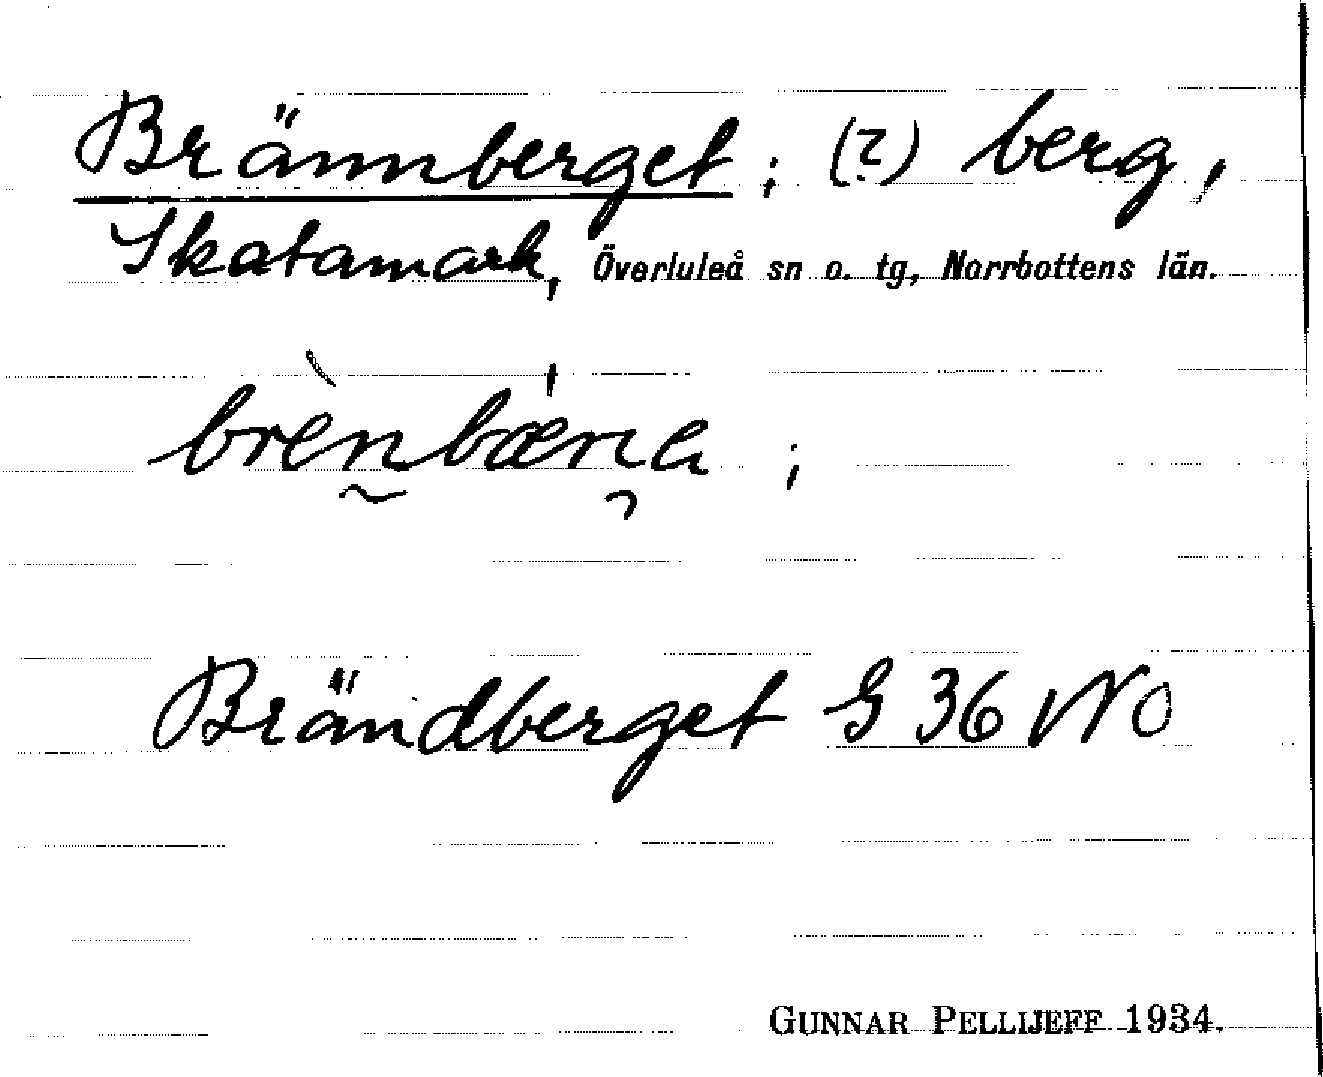 Brännberget; (?) berg,
Skatamark, Överluleå sn o. tg, Norrbottens län.
brènbærɩa;
Brändberget G 36 NO
GUNNAR PELLIJEFF 1934.